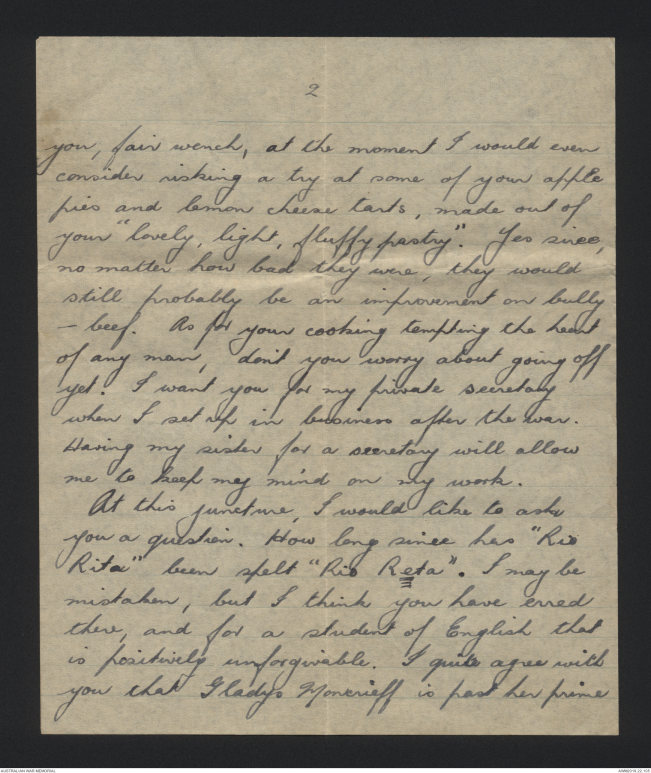 2
you, fair wench, at the moment I would even
consider risking a try at some of your apple
pies and lemon cheese tarts, made out of
your "lovely, light, fluffy pastry". Yes siree,
no matter how bad they were, they would
still probably be an improvement on bully
- beef. As for your cooking tempting the heart
of any man, don't you worry about going off
yet. I want you for my private secretary
when I set up in business after the war.
Having my sister for a secretary will allow
me to keep my mind on my work.
At this juncture, I would like to ask
you a question. How long since has "Rio
Rita" been spelt "Rio Reta". I may be
mistaken, but I think you have erred
there, and for a student of English that
is positively unforgivable. I quite agree with
you that Gladys Moncrieff is past her prime
AUSTRALIAN WAR MEMORIAL